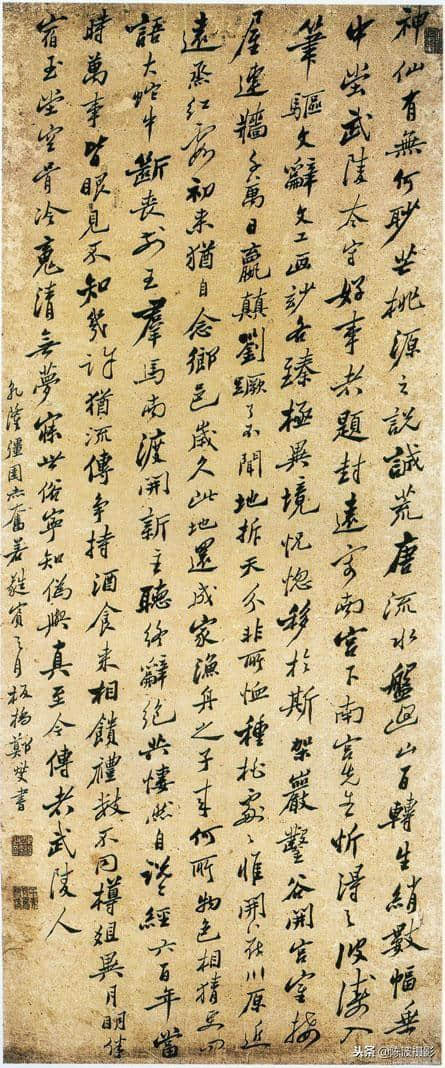 神仙有無何眇芒桃源之說誠荒唐流水盤迴山百轉生綃數幅垂
中堂武陵太守好事者題封遠寄南宮下南宮先生忻得之波濤入
筆驅文辭文工画妙各臻極異境恍惚移於斯架巖鑿谷開宮室接
屋連牆千萬日嬴顛劉蹶了不聞地坼天分非所恤種桃處〻惟開花川原近
遠蒸紅霞初来猶自念鄉邑歲久此地還成家漁舟之子来何所物色相猜更問
語大蛇中斷喪前王羣馬南渡開新主聽終辭絕共悽然自說經六百年當
時萬事皆眼見不知幾許猶流傳爭持酒食来相饋禮數不同樽俎異月明伴
宿玉堂空骨冷魂清無夢寐世俗寧知偽與真至今傳者武陵人
乾隆彊圉赤奮若蕤賓之月板橋鄭燮書
头条@陈波摄影